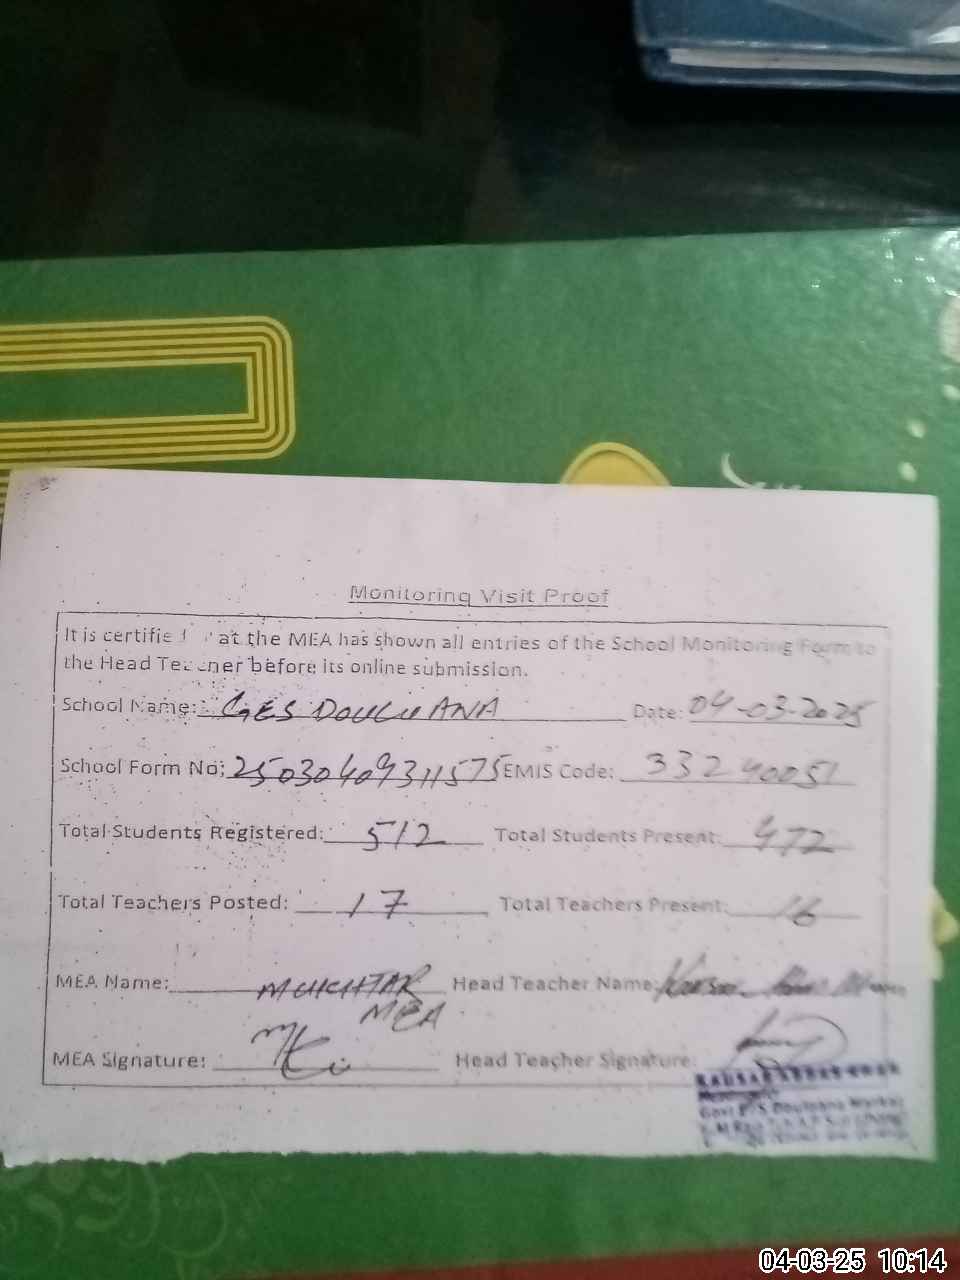 Monitoring Visit Proof
It is certifie at the MEA has shown all entries of the School Monitoring Form to
the Head Teacher before its online submission.
School Name: GES DOULUANA Date: 04-03-2025
School Form No: 25030409311575 EMIS Code: 33240051
Total Students Registered: 512 Total Students Present: 472
Total Teachers Posted: 17 Total Teachers Present: 16
MEA Name: MUKHTAR Head Teacher Name:
MEA
MEA Signature: Head Teacher Signature:
KAUSAR ABBAS KHAN
Govt
04-03-25 10:14